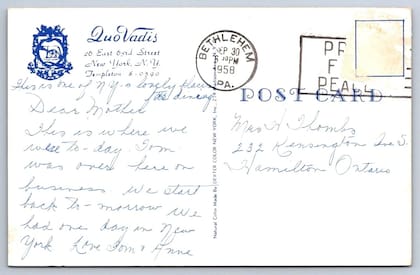 Quo Vadis
26 East 63rd Street
New York, N.Y.
Templeton 8-0590
This is one of N.Y.'s lovely places
for dining
Dear Mother
This is where we
were to-day. Tom
was over here on
business we start
back to-morrow we
had one day in New
York Love Tom & Anne
BETHLEHEM
SEP 30
PM
1958
PA.
PR
F
PEACE
POST CARD
Mrs H Thombs
232 Kensington Ave S.
Hamilton Ontario
Natural Color Made By DEXTER COLOR NEW YORK, INC.